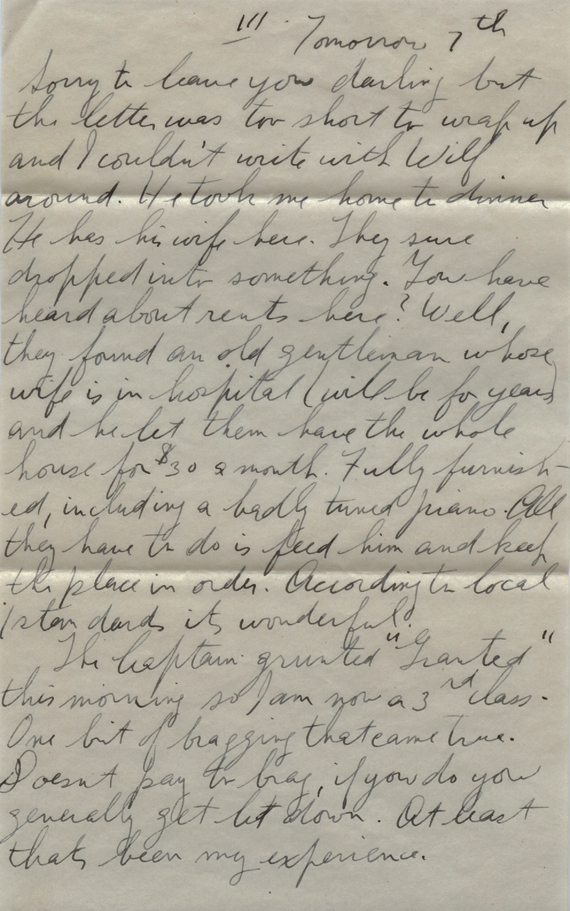 III. Tomorrow 7th
Sorry to leave you darling but
the letter was too short to wrap up
and I couldn't write with Wilf
around. He took me home to dinner
He has his wife here. They sure
dropped into something. You have
heard about rents here? Well,
they found an old gentleman whose
wife is in hospital (will be for years)
and he let them have the whole
house for $30 a month. Fully furnish-
ed, including a badly tuned piano. All
they have to do is feed him and keep
the place in order. According to local
standards its wonderful.
The Captain grunted "Granted"
this morning so I am now a 3rd class.
One bit of bragging that came true.
Doesnt pay to brag, if you do you
generally get let down. At least
thats been my experience.